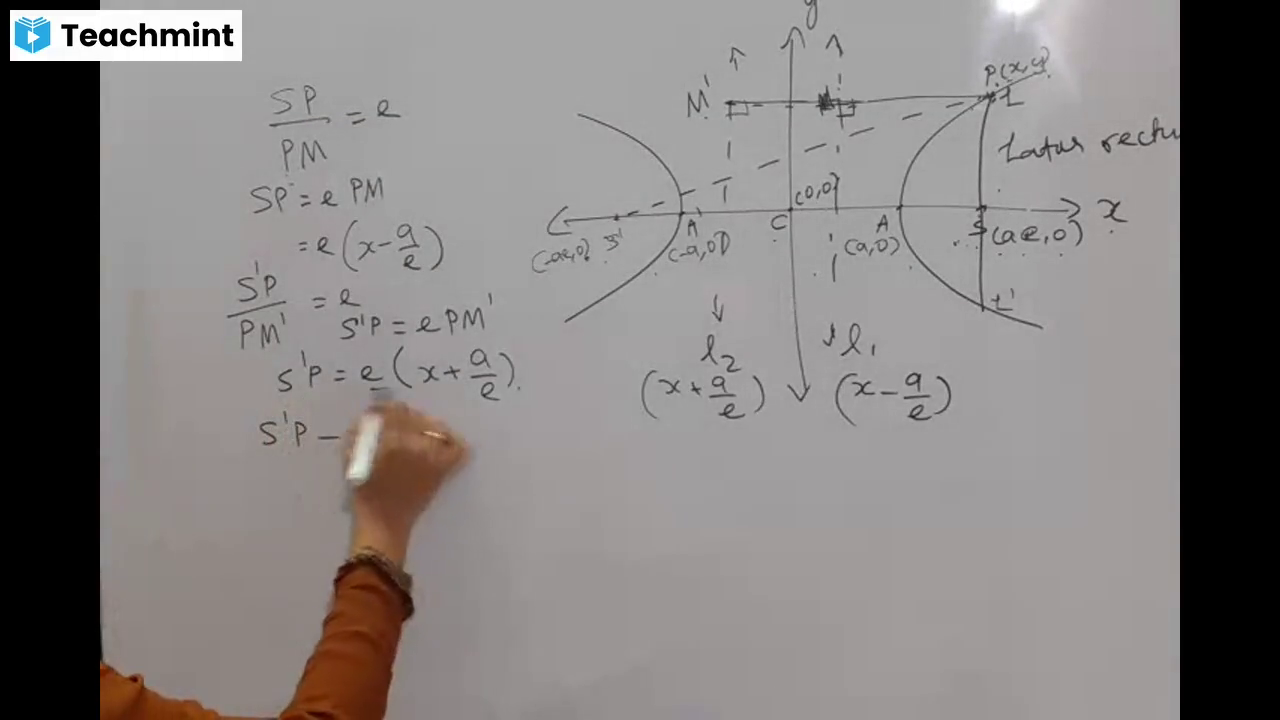 Teachmint
SP/PM = e
SP = e PM
= e(x - a/e)
S'P/PM' = e
S'P = e PM'
S'P = e(x + a/e).
S'P -
y
M'
P(x, y)
L
Latus rectu
(0,0)
x
(-ae,0) S'
A
(-a,0)
C
A
(a,0)
S
(ae,0)
L'
l₂
(x + a/e)
l₁
(x - a/e)